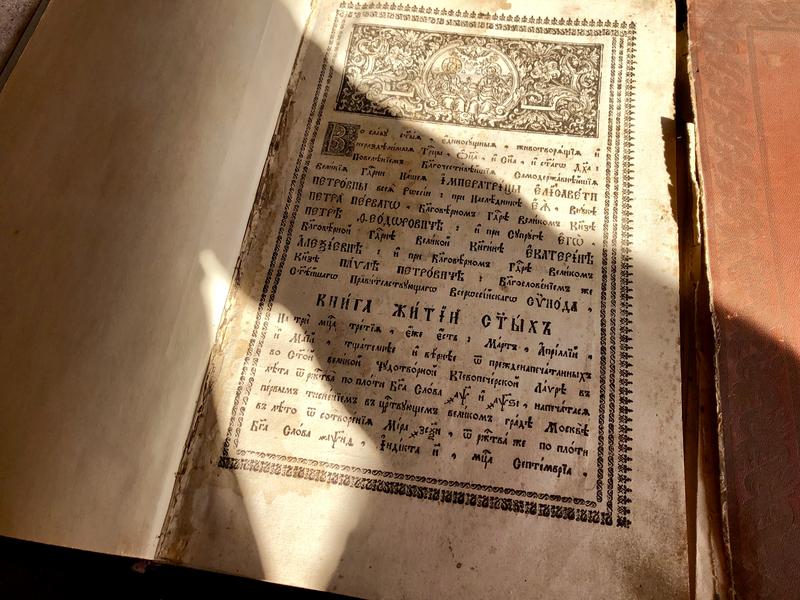 Во славу ст҃ыѧ, єдиносꙋщныѧ, животворѧщїѧ и
нераздѣлимыѧ Трⷪ҇цы, Ѻц҃а, и Сн҃а, и ст҃агѡ Дх҃а:
Повелѣнїемъ Благочестивѣйшїѧ Самодержавнѣйшїѧ
Великїѧ Гдⷭ҇рни Нашеѧ ІМПЕРАТРІЦЫ ЕЛІСАВЕТИ
ПЕТРОВНЫ всеѧ Рѡссїи: при Наслѣдникѣ ЕѦ, Внꙋкѣ
ПЕТРА ПЕРВАГѠ, Благовѣрномъ Гдⷭ҇рѣ Великомъ Кнѧзѣ
ПЕТРѢ ѲЕОДѠРОВИЧѢ: и при Сꙋпрꙋгѣ ЕГѠ,
Благовѣрной Гдⷭ҇рнѣ Великой Кнѧгинѣ ЕКАТЕРІНѢ
АЛЕѮІЕВНѢ: и при Благовѣрномъ Гдⷭ҇рѣ Великомъ
Кнѧзѣ ПАѴЛѢ ПЕТРОВИЧѢ: Благословенїемъ же
Ст҃ѣйшагѡ Правителствꙋющагѡ Всерѡссїйскагѡ СѴНОДА,
КНИГА ЖИТІЙ СТ҃ЫХЪ
На три мцⷭ҇а третїѧ, єже єсть: Мартъ, Апрїллїй,
и Маїй, тщателнѣе и вѣрнѣе ѿ прежденапечатанныхъ
во Ст҃ой великой чꙋдотворной Кїевопечерской Лаѵрѣ въ
лѣта ѿ рж҃тва по плоти Бг҃а Слова ҂аѱ҃ и ҂аѱѕ҃і, напечатасѧ
первымъ тисненїемъ въ црⷭ҇твꙋющемъ великомъ градѣ Москвѣ
въ лѣто ѿ сотворенїѧ Мїра ҂зсѯ҃и, ѿ рж҃тва же по плоти
Бг҃а Слова ҂аѱн҃ѳ, Індїкта и҃, мцⷭ҇а Септемврїа,